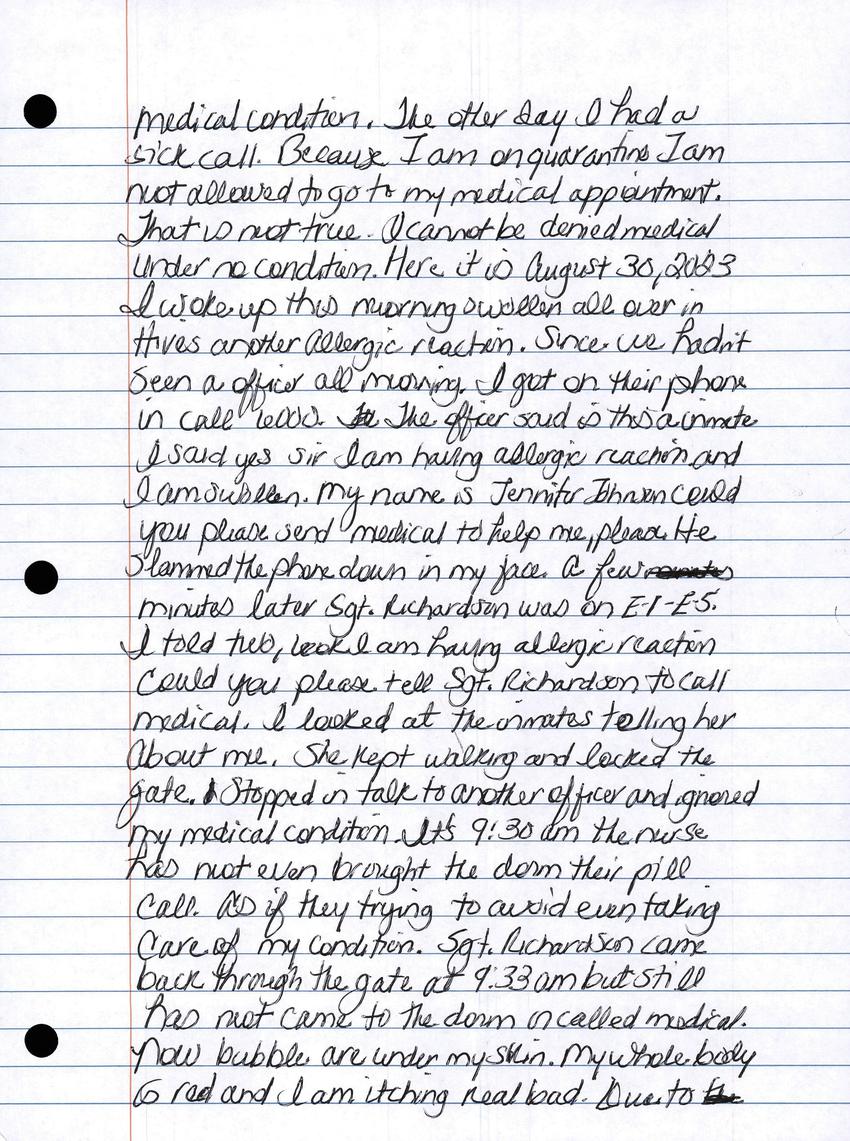 medical condition. The other day I had a
sick call. Because I am on quarantine I am
not allowed to go to my medical appointment.
That is not true. I cannot be denied medical
under no condition. Here it is August 30, 2023
I woke up this morning swollen all over in
Hives another Allergic reaction. Since we hadn't
seen a officer all morning. I got on their phone
in call 6000. The officer said is this a inmate
I said yes sir I am having allergic reaction and
I am swollen. My name is Jennifer Johnson could
you please send medical to help me, please. He
slammed the phone down in my face. A few minutes
minutes later Sgt. Richardson was on E-1-E-5.
I told two, look I am having allergic reaction
Could you please tell Sgt. Richardson to call
medical. I looked at the inmates telling her
About me. She kept walking and locked the
gate. Stopped in talk to another officer and ignored
my medical condition. It's 9:30 am the nurse
has not even brought the dorm their pill
Call. As if they trying to avoid even taking
Care of my condition. Sgt. Richardson came
back through the gate at 9:33 am but still
has not came to the dorm or called medical.
Now bubble are under my skin. My whole body
is red and I am itching real bad. Due to